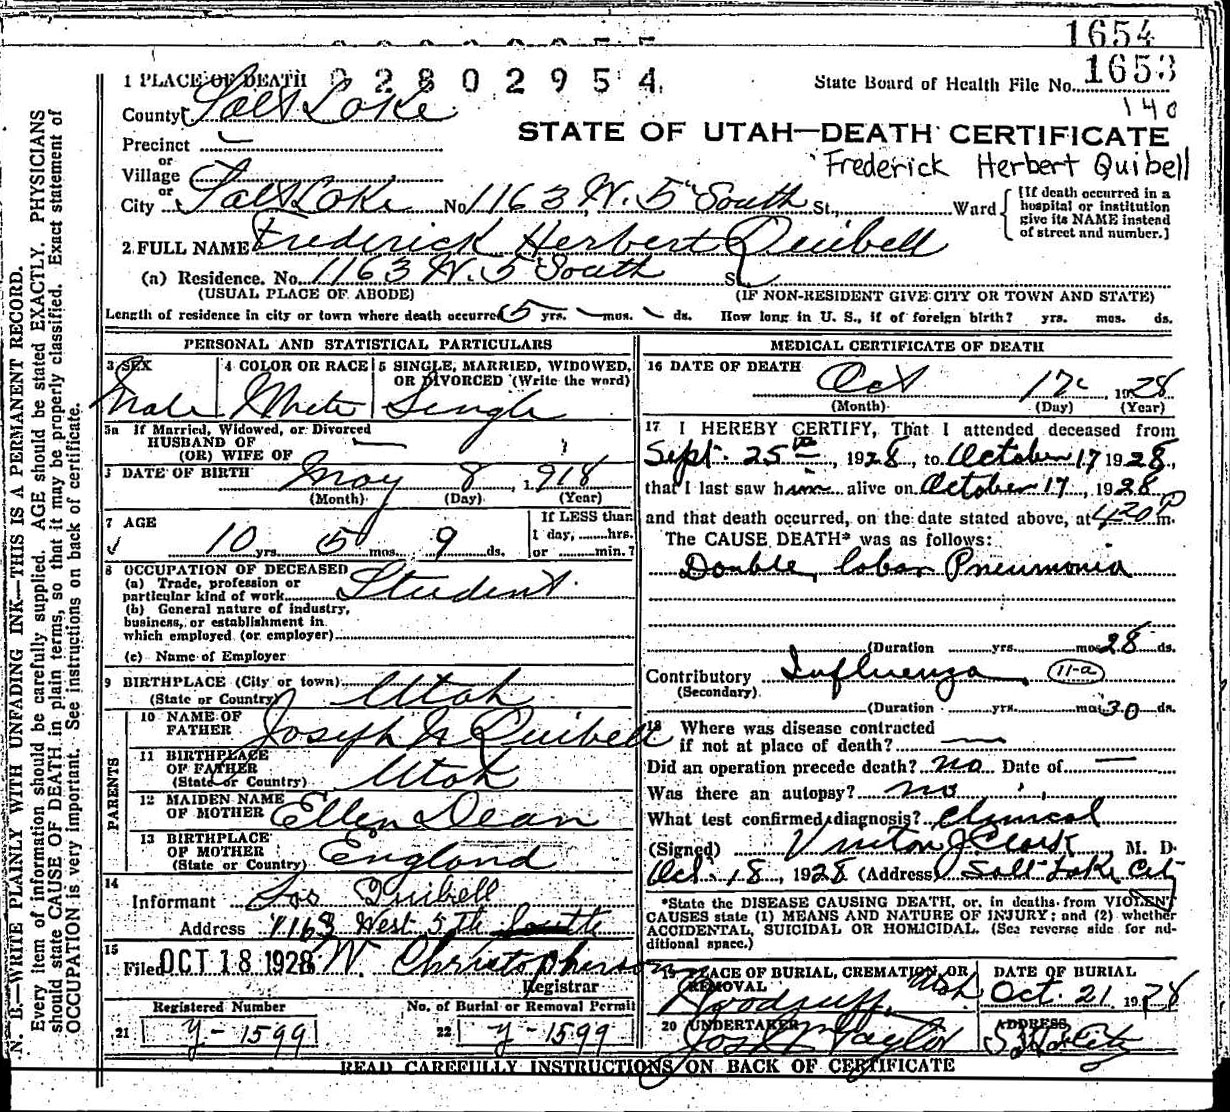 1654
1 PLACE OF DEATH 02802954 State Board of Health File No. 1653
County Salt Lake 140
Precinct —
STATE OF UTAH—DEATH CERTIFICATE
or
Village Frederick Herbert Quibell
or
City Salt Lake No. 1163 W. 5" South St., Ward [If death occurred in a hospital or institution give its NAME instead of street and number.]
2. FULL NAME Frederick Herbert Quibell
(a) Residence. No. 1163 W. 5 South St.
(USUAL PLACE OF ABODE) (IF NON-RESIDENT GIVE CITY OR TOWN AND STATE)
Length of residence in city or town where death occurred 5 yrs. mos. ds. How long in U. S., if of foreign birth? yrs. mos. ds.
PERSONAL AND STATISTICAL PARTICULARS
3 SEX 4 COLOR OR RACE 5 SINGLE, MARRIED, WIDOWED, OR DIVORCED (Write the word)
Male White Single
5a If Married, Widowed, or Divorced
HUSBAND OF —
(OR) WIFE OF
DATE OF BIRTH May 8, 1918
(Month) (Day) (Year)
7 AGE If LESS than
1 day, hrs.
10 yrs. 5 mos. 9 ds. or min.?
8 OCCUPATION OF DECEASED
(a) Trade, profession or
particular kind of work Student.
(b) General nature of industry,
business, or establishment in
which employed (or employer)
(c) Name of Employer
9 BIRTHPLACE (City or town)
(State or Country) Utah
PARENTS
10 NAME OF
FATHER Joseph Quibell
11 BIRTHPLACE
OF FATHER
(State or Country) Utah
12 MAIDEN NAME
OF MOTHER Ellen Dean
13 BIRTHPLACE
OF MOTHER
(State or Country) England
14
Informant Jos Quibell
Address 1163 West 5th South
15
Filed OCT 18 1928 W. Christopherson
Registrar
Registered Number No. of Burial or Removal Permit
21 y-1599 22 y-1599
MEDICAL CERTIFICATE OF DEATH
16 DATE OF DEATH Oct 17 1928
(Month) (Day) (Year)
17 I HEREBY CERTIFY, That I attended deceased from
Sept. 25th, 1928, to October 17 1928,
that I last saw him alive on October 17, 1928
and that death occurred, on the date stated above, at 420 P m.
The CAUSE DEATH* was as follows:
Double, lobar Pneumonia
(Duration yrs. mos 28 ds.
Contributory Influenza 11-a
(Secondary)
(Duration yrs. mos 30 ds.
18 Where was disease contracted
if not at place of death? —
Did an operation precede death? no Date of —
Was there an autopsy? no
What test confirmed diagnosis? Clinical
(Signed) Vinton J Clark, M. D.
Oct. 18, 1928 (Address) Salt Lake City
*State the DISEASE CAUSING DEATH, or, in deaths from VIOLENT
CAUSES state (1) MEANS AND NATURE OF INJURY; and (2) whether
ACCIDENTAL, SUICIDAL OR HOMICIDAL. (See reverse side for additional space.)
PLACE OF BURIAL, CREMATION, OR REMOVAL DATE OF BURIAL
Woodruff, Utah Oct. 21 1928
20 UNDERTAKER ADDRESS
Jos. Taylor S L City
READ CAREFULLY INSTRUCTIONS ON BACK OF CERTIFICATE
N. B.—WRITE PLAINLY WITH UNFADING INK—THIS IS A PERMANENT RECORD.
Every item of information should be carefully supplied. AGE should be stated EXACTLY. PHYSICIANS
should state CAUSE OF DEATH in plain terms, so that it may be properly classified. Exact statement of
OCCUPATION is very important. See instructions on back of certificate.